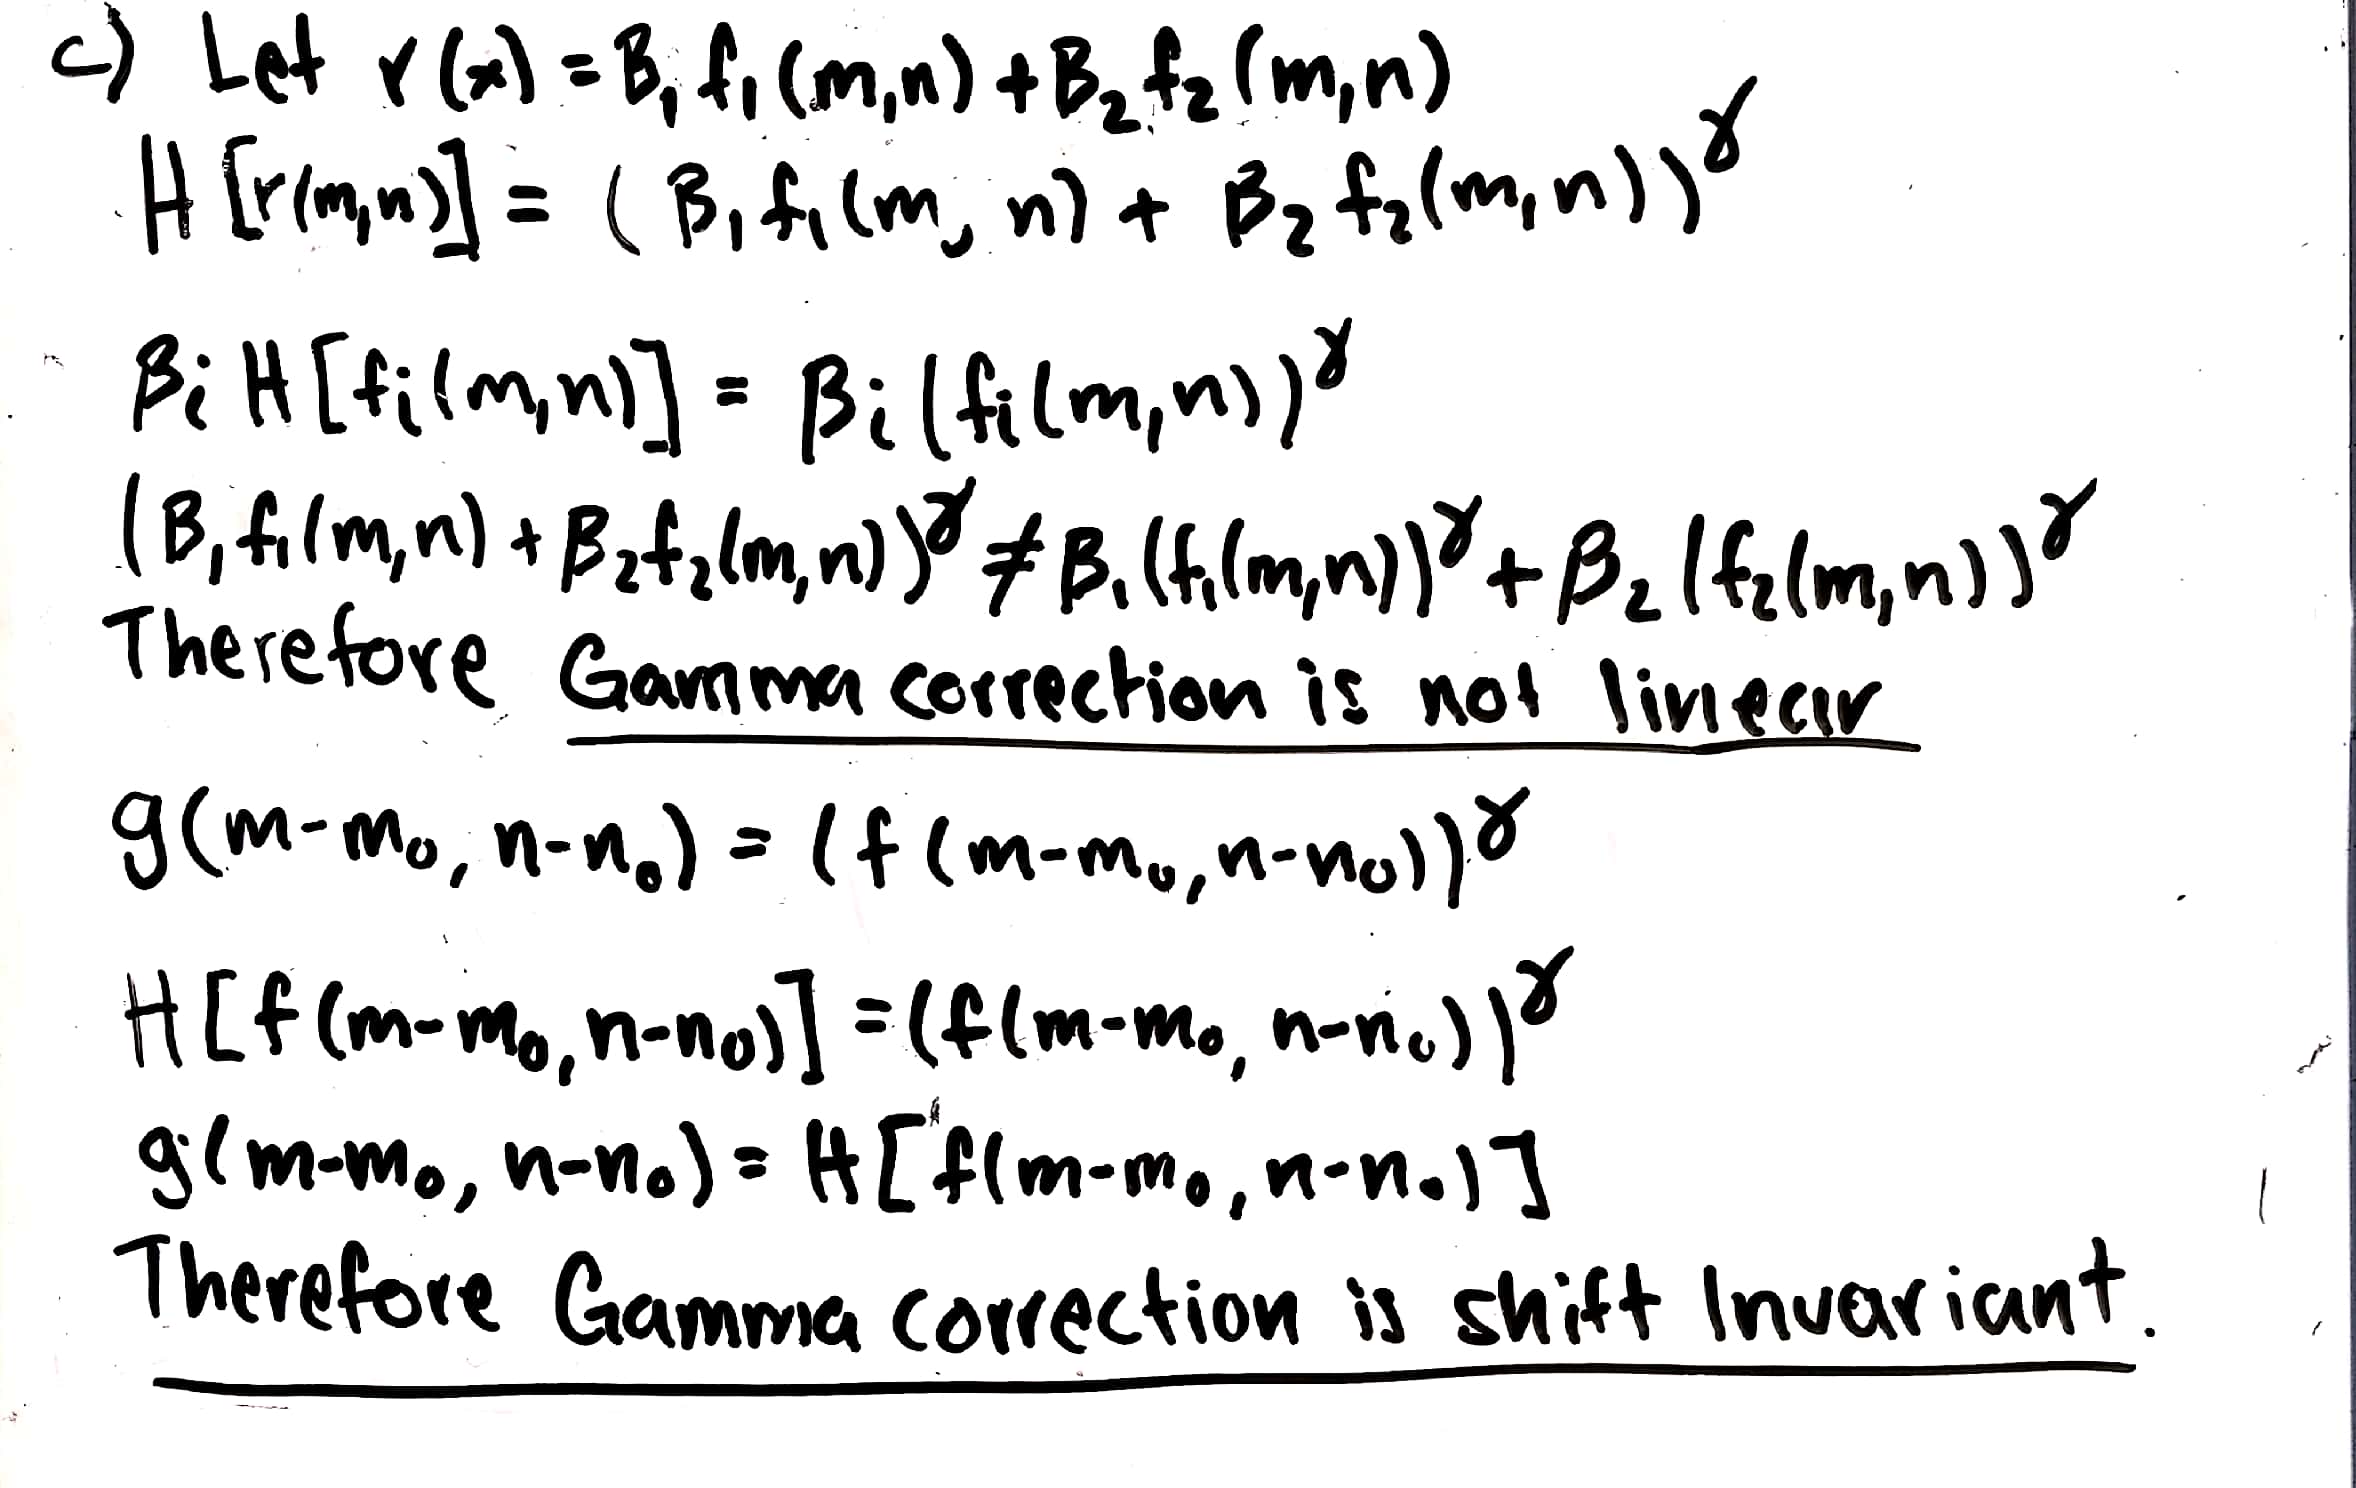 c) Let r(x) = B₁f₁(m,n) + B₂f₂(m,n)
H[r(m,n)] = (β₁f₁(m,n) + β₂f₂(m,n))^γ
βᵢH[fᵢ(m,n)] = βᵢ(fᵢ(m,n))^γ
(β₁f₁(m,n) + β₂f₂(m,n))^γ ≠ β₁(f₁(m,n))^γ + β₂(f₂(m,n))^γ
Therefore Gamma correction is not linear
g(m-m₀, n-n₀) = (f(m-m₀, n-n₀))^γ
H[f(m-m₀, n-n₀)] = (f(m-m₀, n-n₀))^γ
g(m-m₀, n-n₀) = H[f(m-m₀, n-n₀)]
Therefore Gamma correction is shift Invariant.